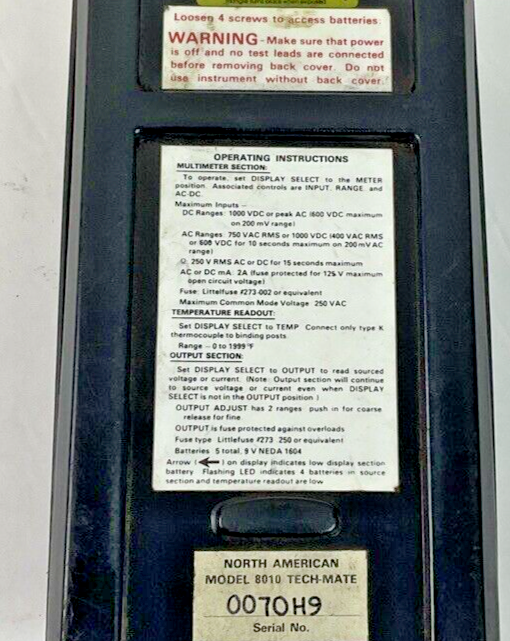 Loosen 4 screws to access batteries.
WARNING - Make sure that power
is off and no test leads are connected
before removing back cover. Do not
use instrument without back cover.
OPERATING INSTRUCTIONS
MULTIMETER SECTION:
To operate, set DISPLAY SELECT to the METER
position. Associated controls are INPUT, RANGE, and
AC-DC.
Maximum Inputs —
DC Ranges: 1000 VDC or peak AC (600 VDC maximum
on 200 mV range)
AC Ranges: 750 VAC RMS or 1000 VDC (400 VAC RMS
or 600 VDC for 10 seconds maximum on 200 mV AC
range)
Ω: 250 V RMS AC or DC for 15 seconds maximum
AC or DC mA: 2A (fuse protected for 125 V maximum
open circuit voltage)
Fuse: Littelfuse #273-002 or equivalent
Maximum Common Mode Voltage 250 VAC
TEMPERATURE READOUT:
Set DISPLAY SELECT to TEMP. Connect only type K
thermocouple to binding posts.
Range – 0 to 1999 °F
OUTPUT SECTION:
Set DISPLAY SELECT to OUTPUT to read sourced
voltage or current. (Note: Output section will continue
to source voltage or current even when DISPLAY
SELECT is not in the OUTPUT position.)
OUTPUT ADJUST has 2 ranges: push in for coarse
release for fine.
OUTPUT is fuse protected against overloads
Fuse type Littlefuse #273 .250 or equivalent
Batteries 5 total, 9 V NEDA 1604
Arrow (←) on display indicates low display section
battery. Flashing LED indicates 4 batteries in source
section and temperature readout are low.
NORTH AMERICAN
MODEL 8010 TECH-MATE
0070H9
Serial No.